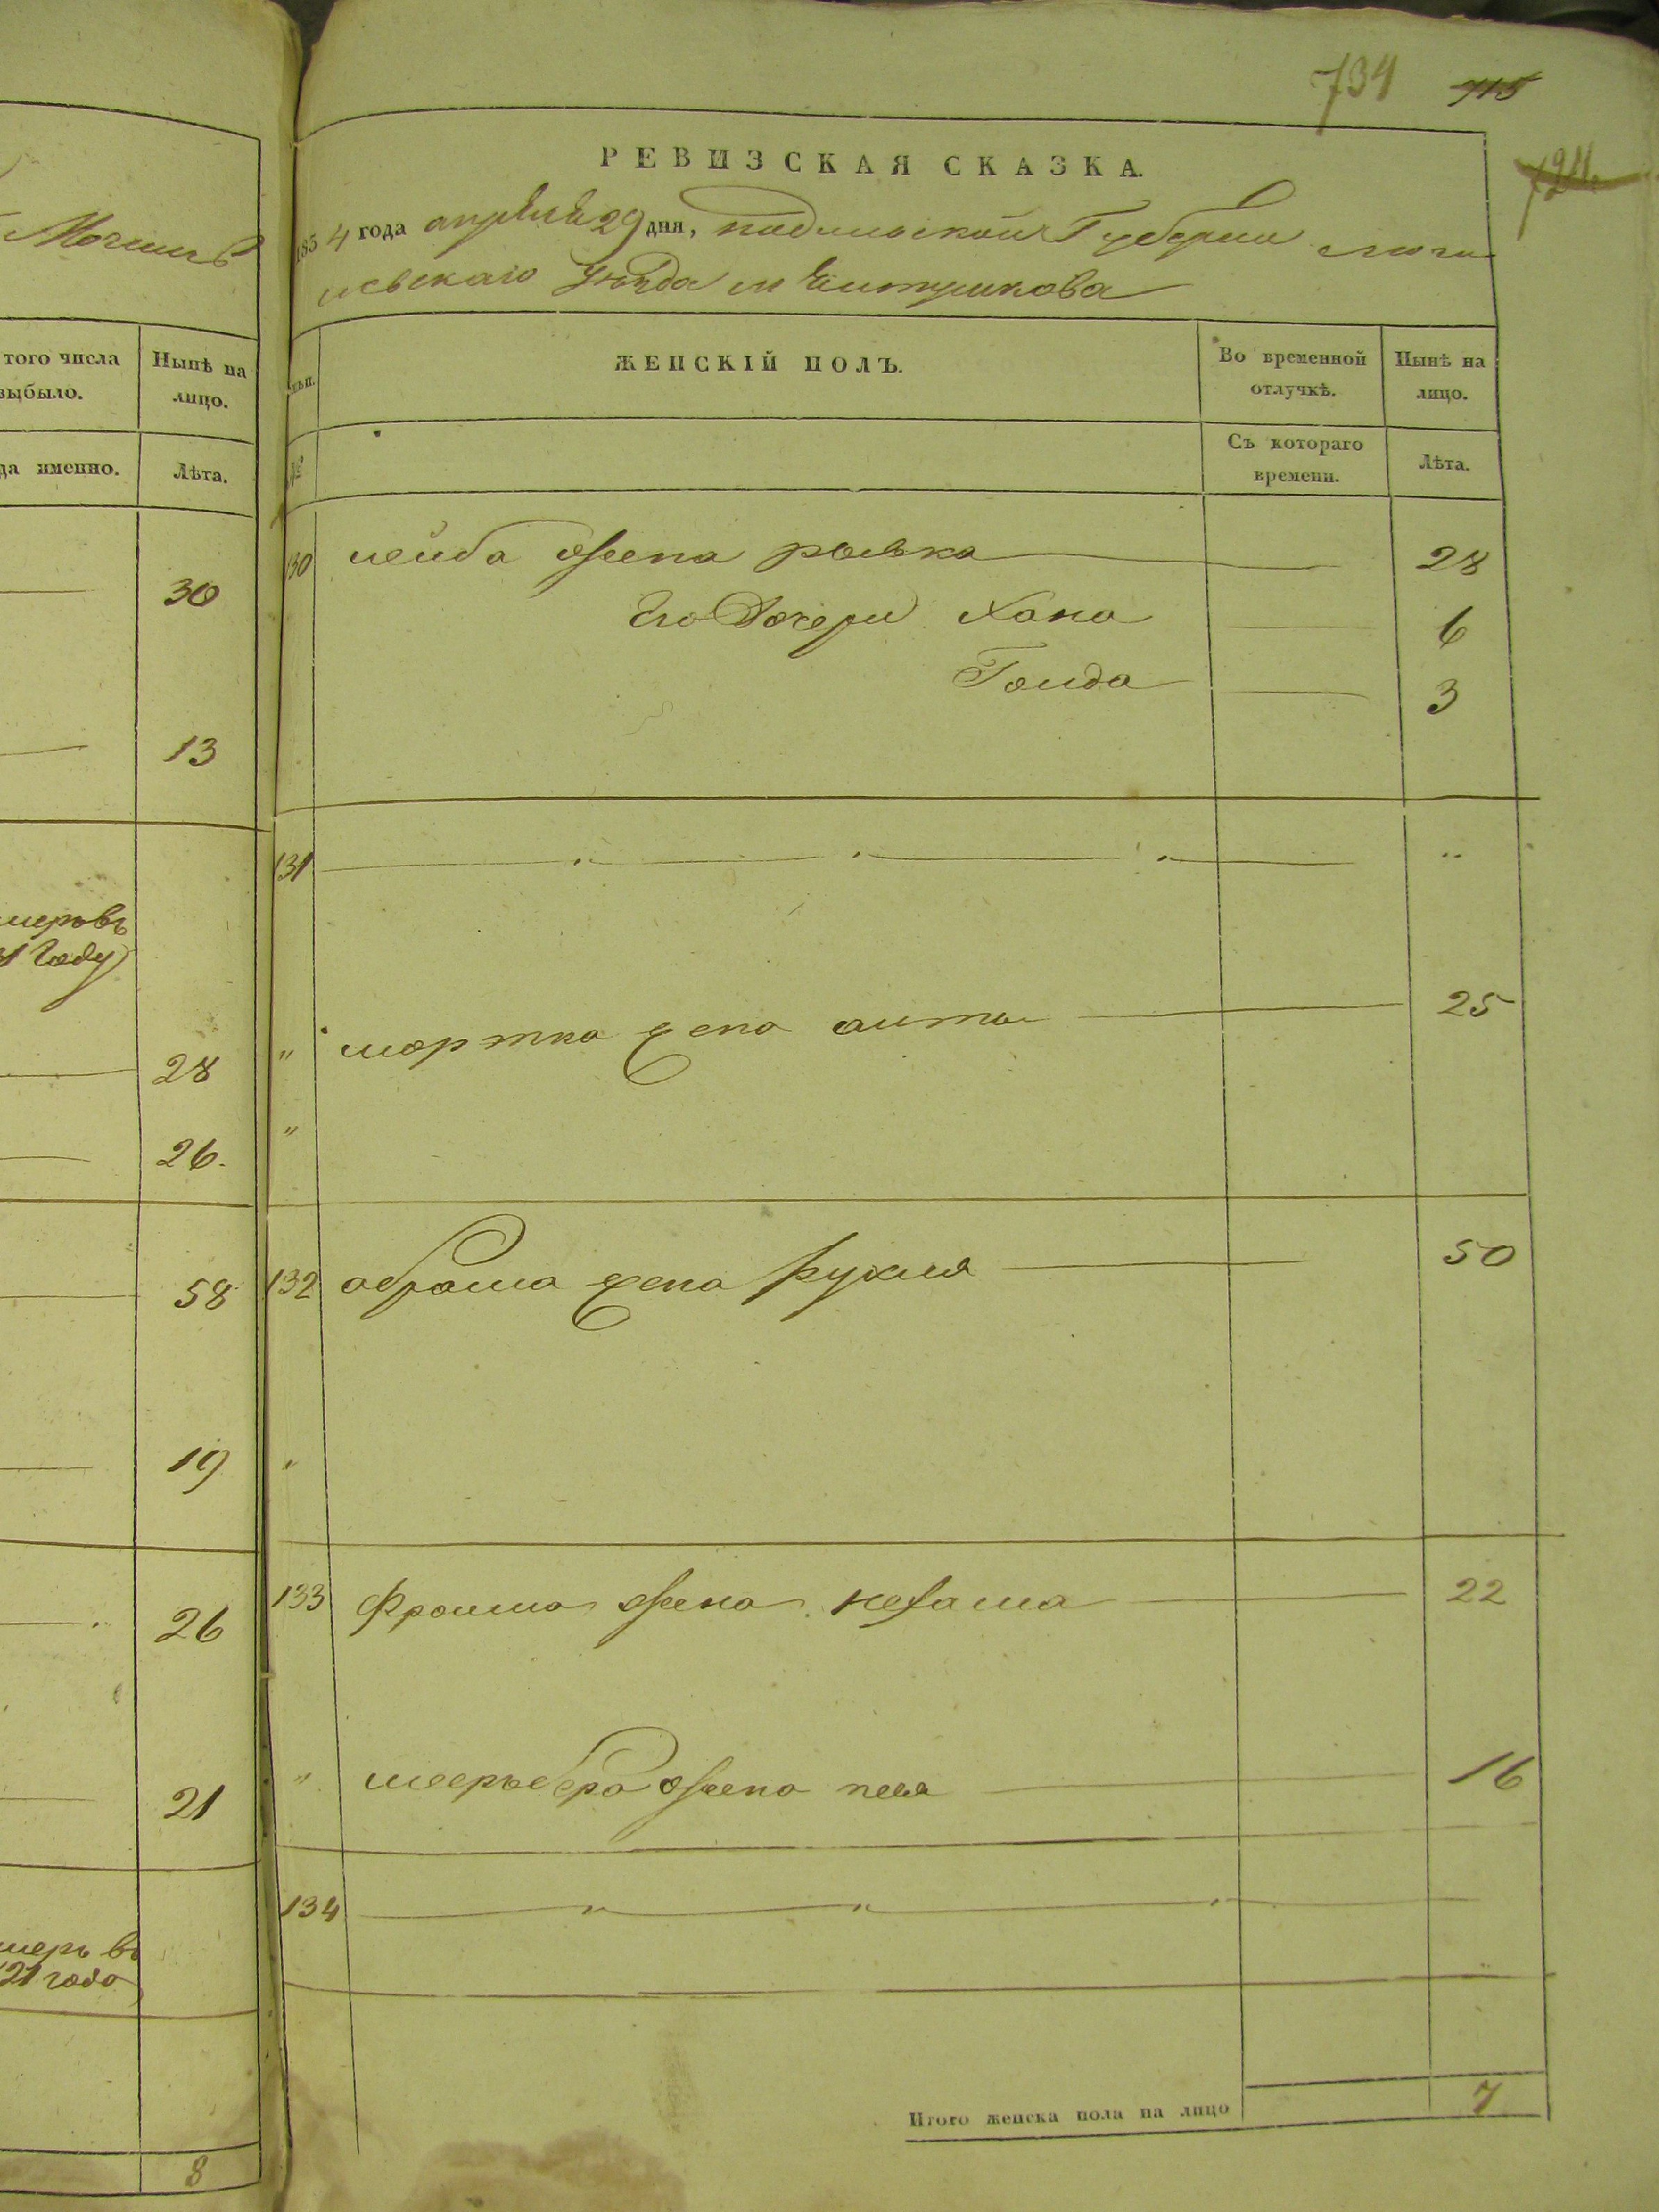 Могилев
того числа
выбыло.
Нынѣ на
лицо.
да именно.
Лѣта.
30
13
меръ въ
1 году
28
26.
58
19
26
21
меръ въ
21 года
8
734 715
724
РЕВИЗСКАЯ СКАЗКА.
1854 года апреля 29 дня, подольской Губернии моги
левскаго уезда м
ЖЕНСКІЙ ПОЛЪ.
Во временной
отлучкѣ.
Нынѣ на
лицо.
№
Съ котораго
времени.
Лѣта.
130 лейба жена ривка — 28
Его Дочери Хана — 6
Голда — 3
131 — " — " — " — "
" мортка жена — 25
"
132 абрама жена рухля — 50
"
133 Фроима жена нехама — 22
" меерьбера жена песя — 16
134 — " — " — " —
Итого женска пола на лицо 7